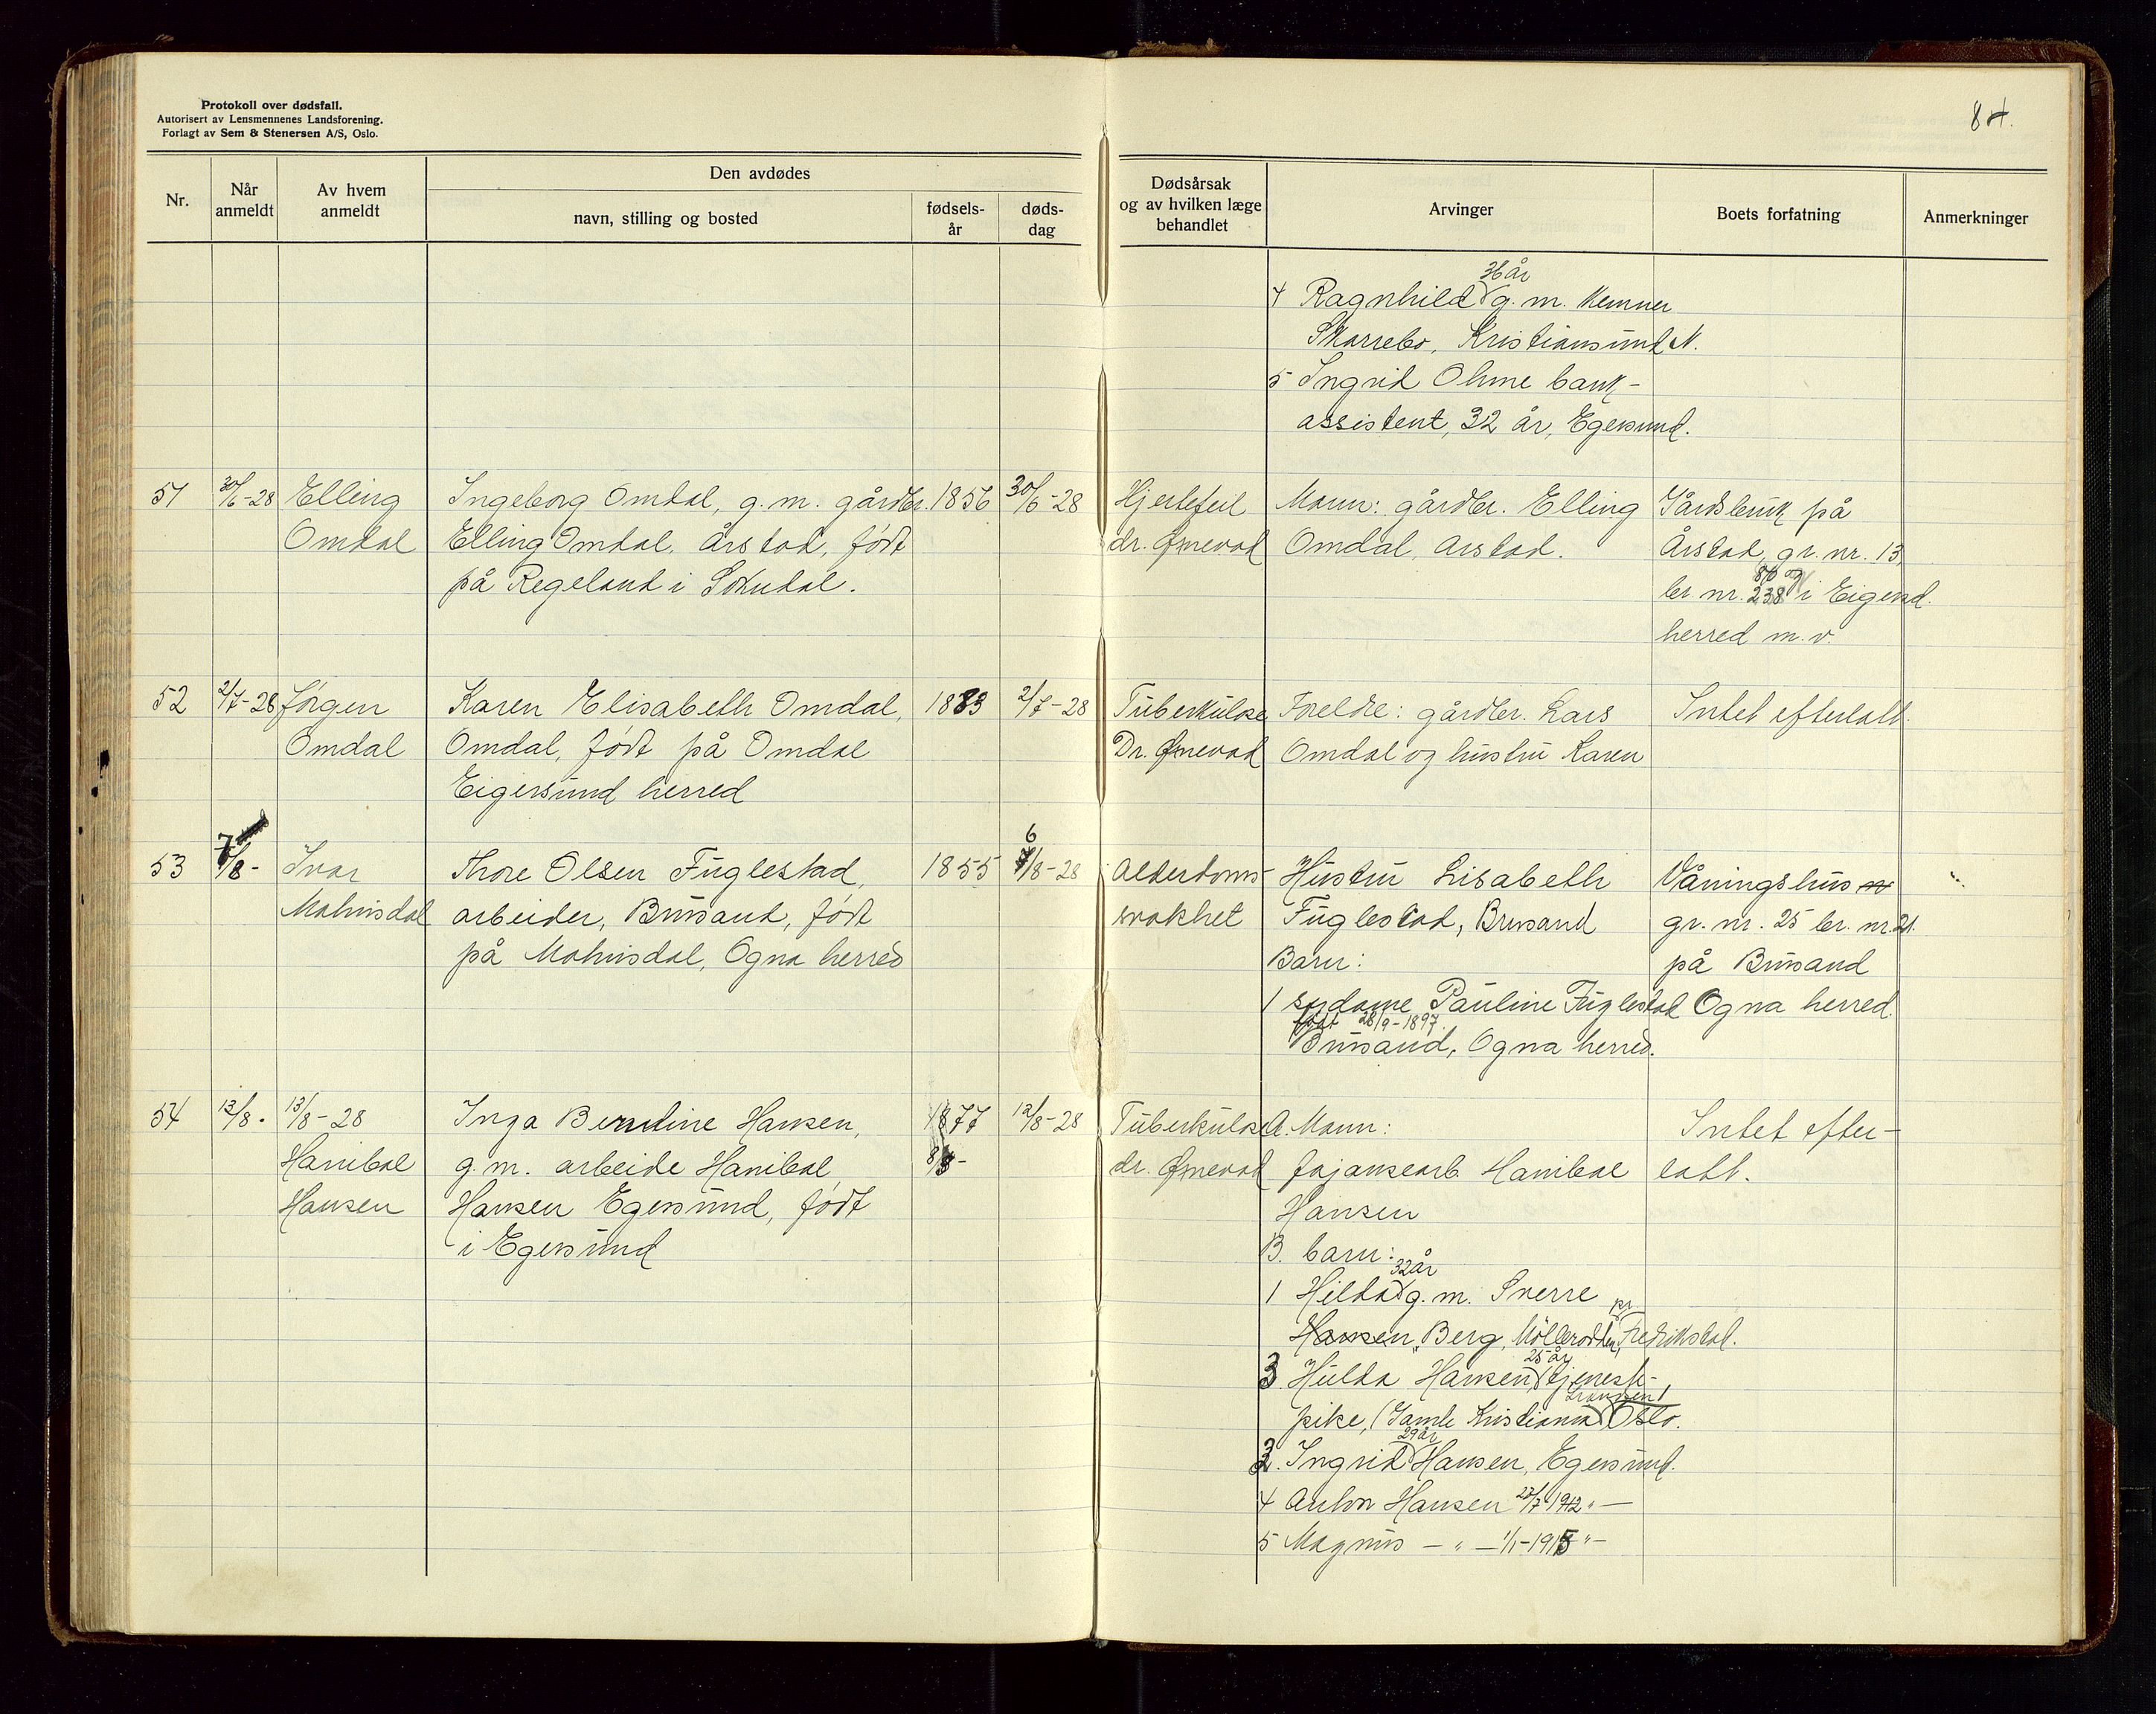 Protokoll over dødsfall.
Autorisert av Lensmennenes Landsforening.
Forlagt av Sem & Stenersen A/S, Oslo.
84.
Nr.
Når anmeldt
Av hvem anmeldt
Den avdødes
navn, stilling og bosted
fødsels-år
døds-dag
Dødsårsak og av hvilken læge behandlet
Arvinger
Boets forfatning
Anmerkninger
36 år
4 Ragnhild g. m. Kemner
Skarrebo, Kristiansund N.
5 Ingrid Ohme bank-
assistent, 32 år, Egersund.
51 30/6-28 Elling Ingeborg Omdal, g. m. gårdbr. 1856 30/6-28 Hjertefeil Mann: gårdbr. Elling Gårdsbruk på
Omdal Elling Omdal, Årstad, født dr. Omdal, Årstad. Årstad, gr. nr. 13,
på Regeland i Sokndal. br. nr. 238 i Eigersd.
herred m. v.
52 2/7-28 Jørgen Karen Elisabeth Omdal, 1883 2/7-28 Tuberkulose Foreldre: gårdbr. Lars Intet efterlatt.
Omdal Omdal, født på Omdal Dr. Omdal og hustru Karen
Eigersund herred
6
53 7/8- Ivar Thore Olsen Fuglestad, 1855 /8-28 Alderdoms- Hustru Lisabeth Våningshus
Malmisdal arbeider, Brusand, født svakhet Fuglestad, Brusand gr. nr. 25 br. nr. 21.
på Malmisdal, Ogna herred Barn: på Brusand
1 sydame Pauline Fuglestad Ogna herred.
født 28/9-1897.
Brusand, Ogna herred.
54 13/8. 13/8-28 Inga Berndine Hansen, 1877 12/8-28 Tuberkulose A. Mann: Intet efter-
Hanibal g. m. arbeide Hanibal 8/8- dr. fajansearb. Hanibal latt.
Hansen Hansen Egersund, født Hansen
i Egersund B. barn:
32 år
1 Hilda g. m. Sverre
Hansen, Berg, pr. Fredrikstad.
25 år
3. Hulda Hansen tjeneste-
pike, (Gamle Kristiania) Oslo.
29 år
2. Ingrid Hansen, Egersund.
4 Anton Hansen 27/7 1912 " —
5 Magnus — " — 1/1-1915 " —